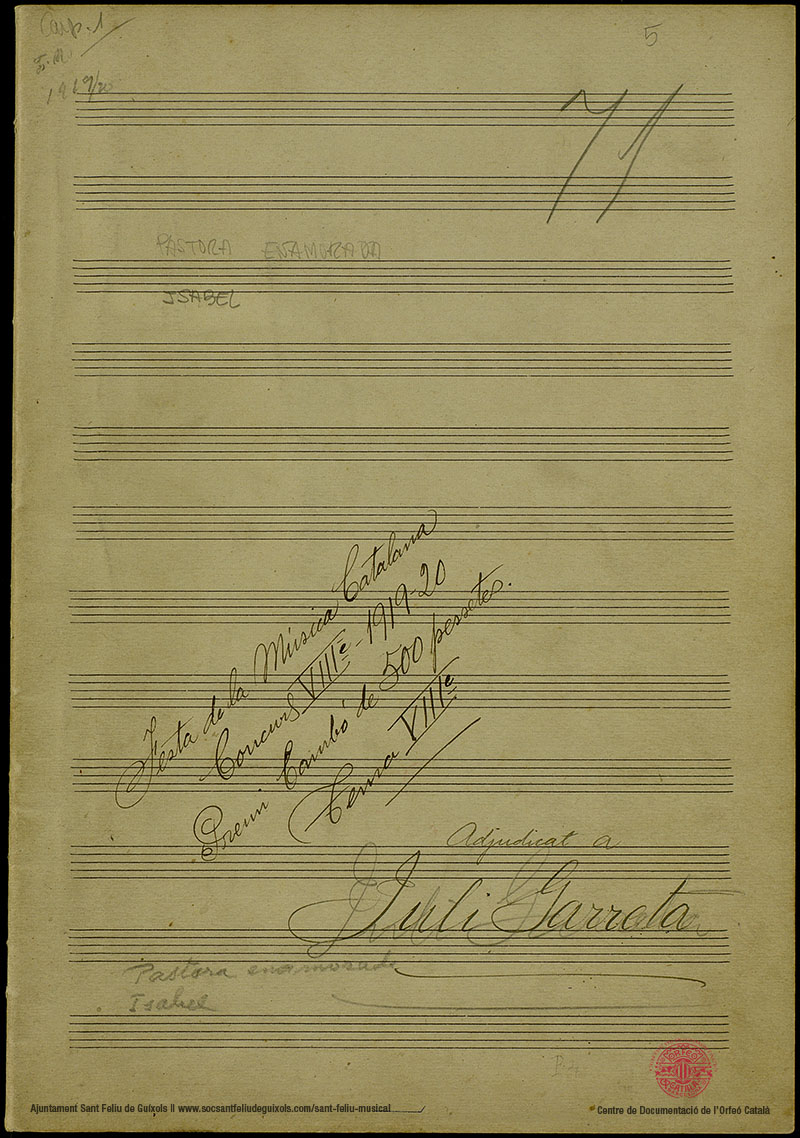 Carp. 1
5
1919/20
71
PASTORA ENAMORADA
ISABEL
Festa de la Música Catalana
Concurs VIIIè - 1919-20
Premi Cambó de 500 pessetes.
Tema VIIIè
Adjudicat a
Juli Garreta
Pastora enamorada
Isabel
ORFEÓ
CATALÀ
Ajuntament Sant Feliu de Guíxols || www.socsantfeliudeguixols.com/sant-feliu-musical
Centre de Documentació de l'Orfeó Català